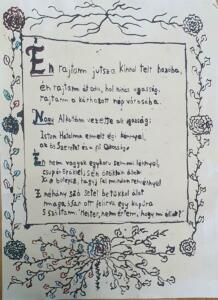 Én rajtam jutsz a kínnal telt hazába,
én rajtam át oda, hol nincs vigasság,
rajtam a kárhozott nép városába.
Nagy Alkotóm vezette az igazság;
Isten Hatalma emelt égi kénnyel,
az ős Szeretet és a fő Okosság.
Én nem vagyok egykorú semmi lénnyel,
csupán örökkel; s én örökkön állok.
Ki itt belépsz, hagyj fel minden reménnyel.
E néhány szó sötét betűkkel állt
magasan ott felírva egy kapura
S szóltam: "Mester, nem értem, hogy mi áll ott?"